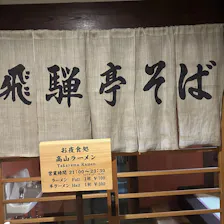 飛騨亭そば
お夜食処
高山ラーメン
Takayama Ramen
営業時間 21:00~23:00
ラーメン Full 1杯
半ラーメン Half 1杯